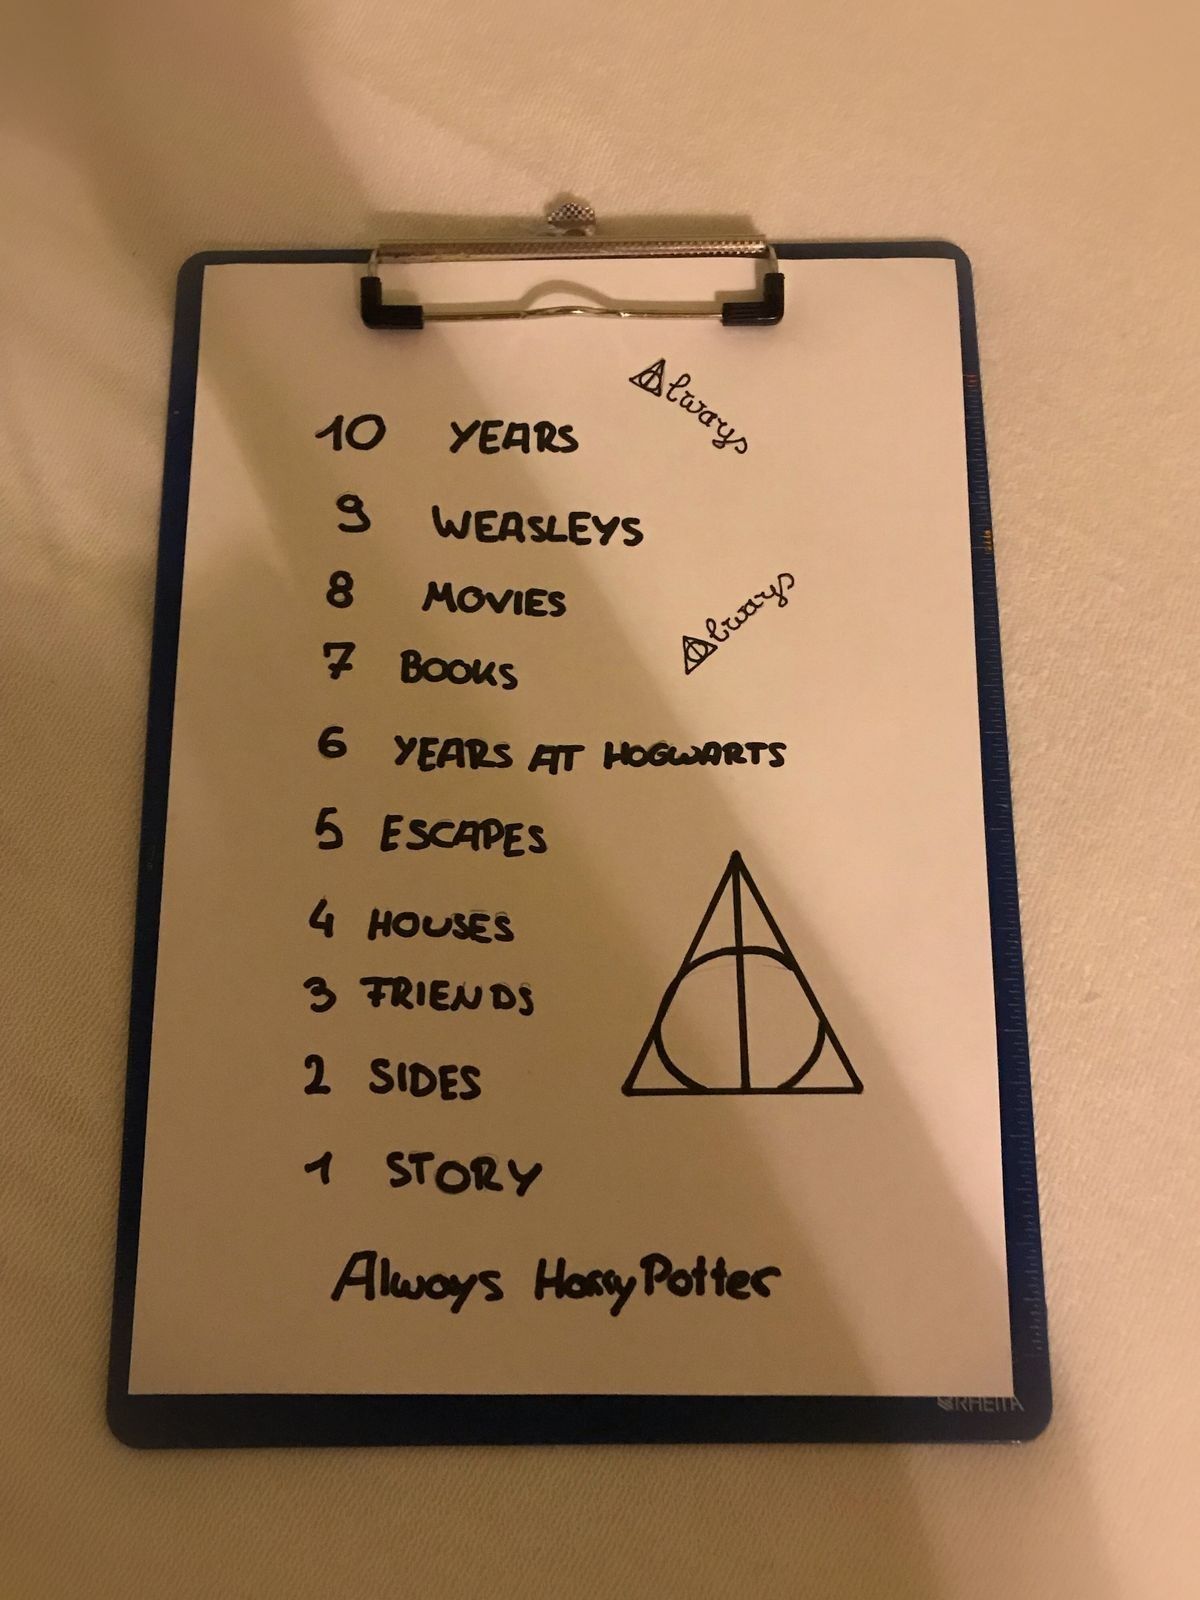 Always
10 YEARS
9 WEASLEYS
8 MOVIES
Always
7 BOOKS
6 YEARS AT HOGWARTS
5 ESCAPES
4 HOUSES
3 FRIENDS
2 SIDES
1 STORY
Always Harry Potter
RHEITA